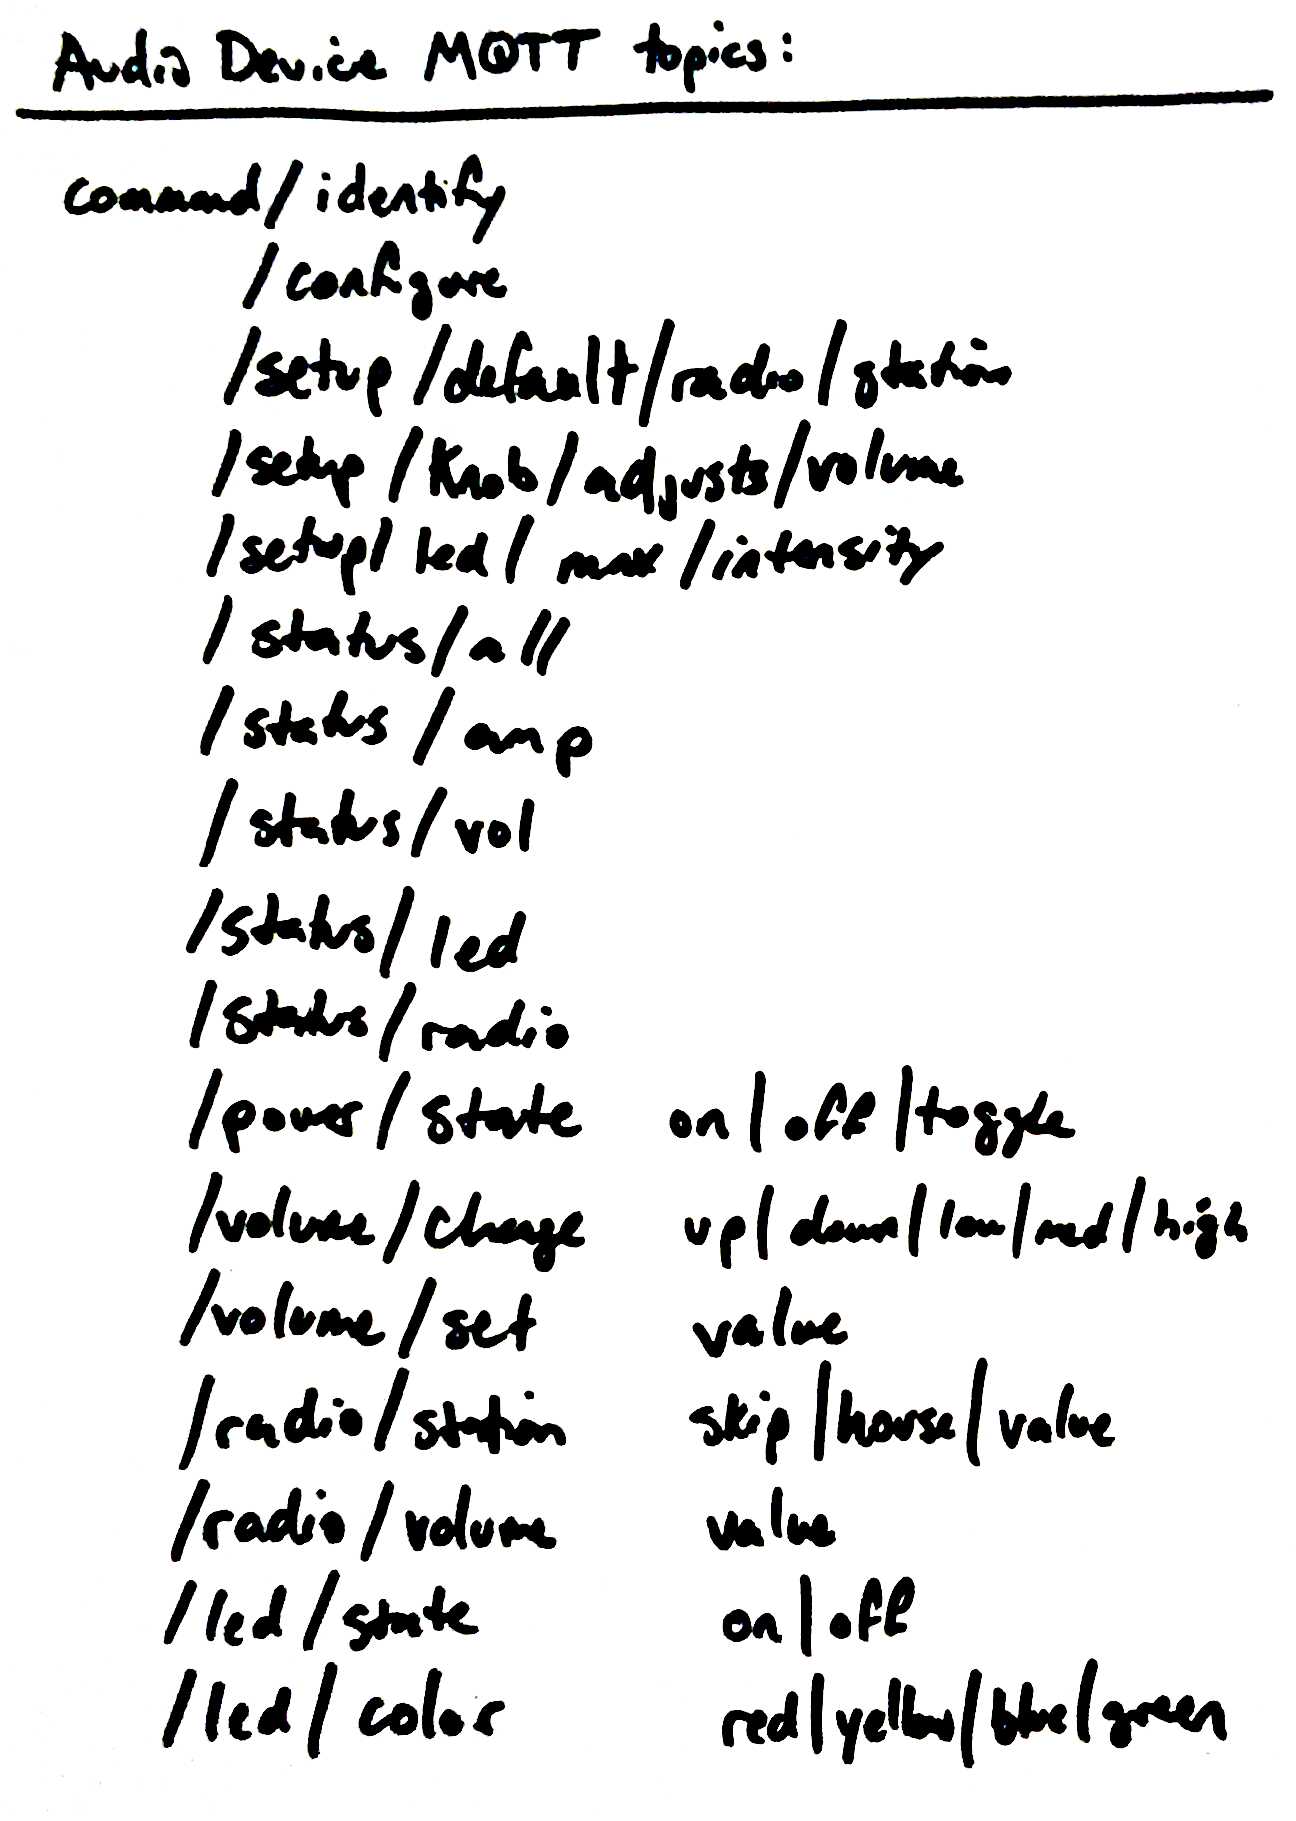 Audio Device MQTT topics:
command/identify
/configure
/setup/default/radio/station
/setup/knob/adjusts/volume
/setup/led/max/intensity
/status/all
/status/amp
/status/vol
/status/led
/status/radio
/power/state on|off|toggle
/volume/change up|down|low|med|high
/volume/set value
/radio/station skip|house|value
/radio/volume value
/led/state on|off
/led/color red|yellow|blue|green